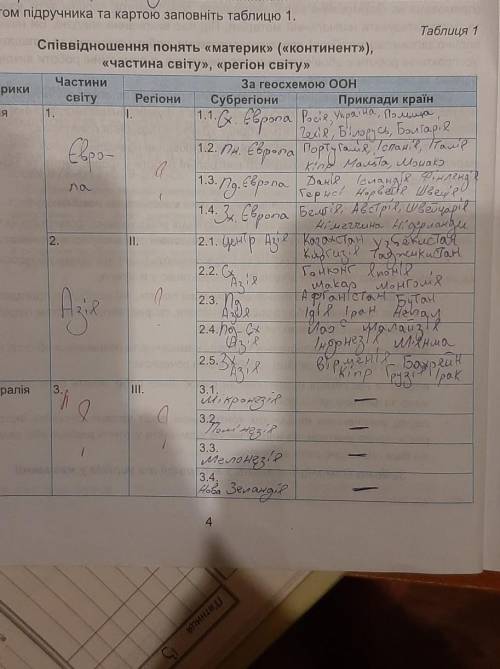 том підручника та картою заповніть таблицю 1.
Таблиця 1
Співвідношення понять «материк» («континент»),
«частина світу», «регіон світу»
рики
Частини світу
За геосхемою ООН
Регіони
Субрегіони
Приклади країн
ія
1.
Європа
I.
1.1. Сх. Європа
Росія, Україна, Польща,
Білорусь, Болгарія
1.2. Пн. Європа
Португалія, Іспанія, Італія
Кіпр Мальта Монако
1.3. Пд. Європа
Данія Ісландія Фінляндія
Норвегія Швеція
1.4. Зх. Європа
Бельгія, Австрія, Швейцарія
Німеччина Нідерланди
2.
Азія
II.
2.1. Центр Азія
Казахстан Узбекистан
Киргизія Таджикистан
2.2. Сх Азія
Гонконг Японія
Макао Монголія
2.3. Пд Азія
Афганістан Бутан
Іран Непал
2.4. Пд-Сх Азія
Лаос Малайзія
Індонезія М'янма
2.5. Зх Азія
Вірменія Бахрейн
Кіпр Грузія Ірак
ралія
3.
III.
3.1. Мікронезія
—
3.2. Полінезія
—
3.3. Меланезія
—
3.4. Нова Зеландія
—
4
П'ятниця